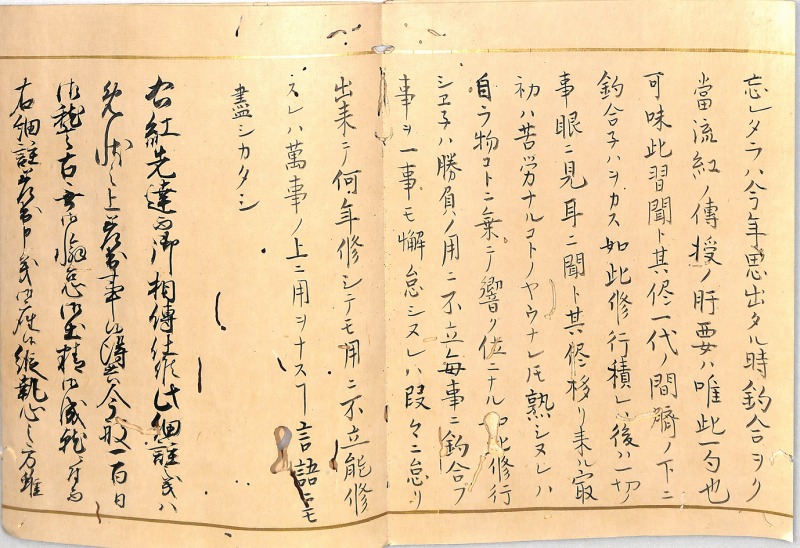 忘レタラハ今年思出タル時釣合ヲク
當流紅ノ傳授ノ肝要ハ唯此一ヶ也
可味此習聞ト其侭一代ノ間臍ノ下ニ
釣合子ハヲカス如此修行積レハ後ハ一切ノ
事眼ニ見耳ニ聞ト其侭移リ来ル㝡
初ハ苦労ナルコトノヤウナレ𪜈熟シヌレハ
自ラ物コトニ乗テ響ク位ニナル 此修行
シヱ子ハ勝負ノ用ニ不立毎事ニ釣合フ
事ヲ一事モ懈怠シヌレハ段々ニ怠リ
出来テ何年修シテモ用ニ不立能修
スレハ萬事ノ上ニ用ヲナスヿ言語ニモ
盡シカタシ
右紅先達而御相傳 此細註或ハ
免状之上 今般一百日
御稽古無御懈怠御出精御成就
右細註 御座候 執心之方雖